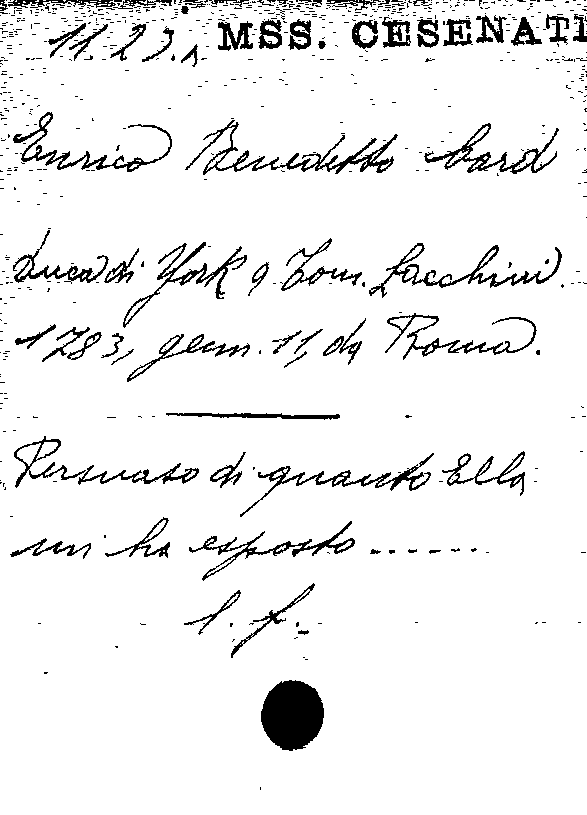 11.23.1 MSS. CESENATI
Enrico Benedetto Card
Duca di York a Tom. Zacchiri.
1783, genn. 11, da Roma.
Persuaso di quanto Ella
mi ha esposto .......
l. f.